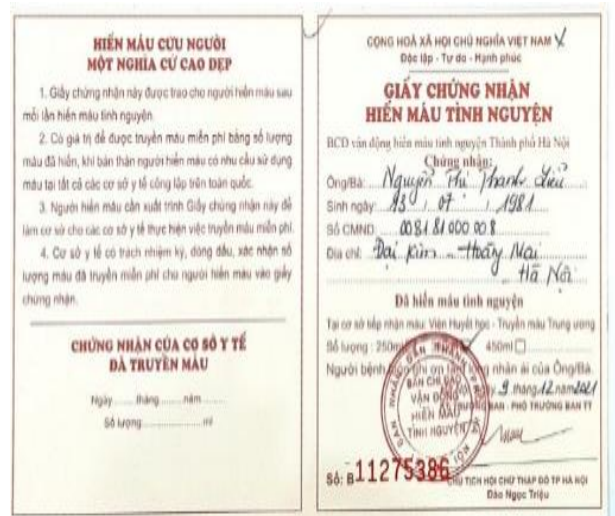 HIẾN MÁU CỨU NGƯỜI
MỘT NGHĨA CỬ CAO ĐẸP
1. Giấy chứng nhận này được trao cho người hiến máu sau
mỗi lần hiến máu tình nguyện.
2. Có giá trị để được truyền máu miễn phí bằng số lượng
máu đã hiến, khi bản thân người hiến máu có nhu cầu sử dụng
máu tại tất cả các cơ sở y tế công lập trên toàn quốc.
3. Người hiến máu cần xuất trình Giấy chứng nhận này để
làm cơ sở cho các cơ sở y tế thực hiện việc truyền máu miễn phí.
4. Cơ sở y tế có trách nhiệm ký, đóng dấu, xác nhận số
lượng máu đã truyền miễn phí cho người hiến máu vào giấy
chứng nhận.
CHỨNG NHẬN CỦA CƠ SỞ Y TẾ
ĐÃ TRUYỀN MÁU
Ngày ......... tháng ......... năm .........
Số lượng ......................... ml
CỘNG HOÀ XÃ HỘI CHỦ NGHĨA VIỆT NAM
Độc lập - Tự do - Hạnh phúc
GIẤY CHỨNG NHẬN
HIẾN MÁU TÌNH NGUYỆN
BCĐ vận động hiến máu tình nguyện Thành phố Hà Nội
Chứng nhận:
Ông/Bà: Nguyễn Thị Thanh
Sinh ngày: 13 / 07 / 1981
Số CMND: 008181000008
Địa chỉ: Đại Kim - Hoàng Mai
Hà Nội
Đã hiến máu tình nguyện
Tại cơ sở tiếp nhận máu: Viện Huyết học - Truyền máu Trung ương
Số lượng: 250ml 450ml
Người bệnh ghi ơn tấm lòng nhân ái của Ông/Bà.
9 tháng 12 năm 2021
TRƯỞNG BAN - PHÓ TRƯỞNG BAN TT
BAN CHỈ ĐẠO
VẬN ĐỘNG
HIẾN MÁU
TÌNH NGUYỆN
Số: B 11275386
CHỦ TỊCH HỘI CHỮ THẬP ĐỎ TP HÀ NỘI
Đào Ngọc Triệu